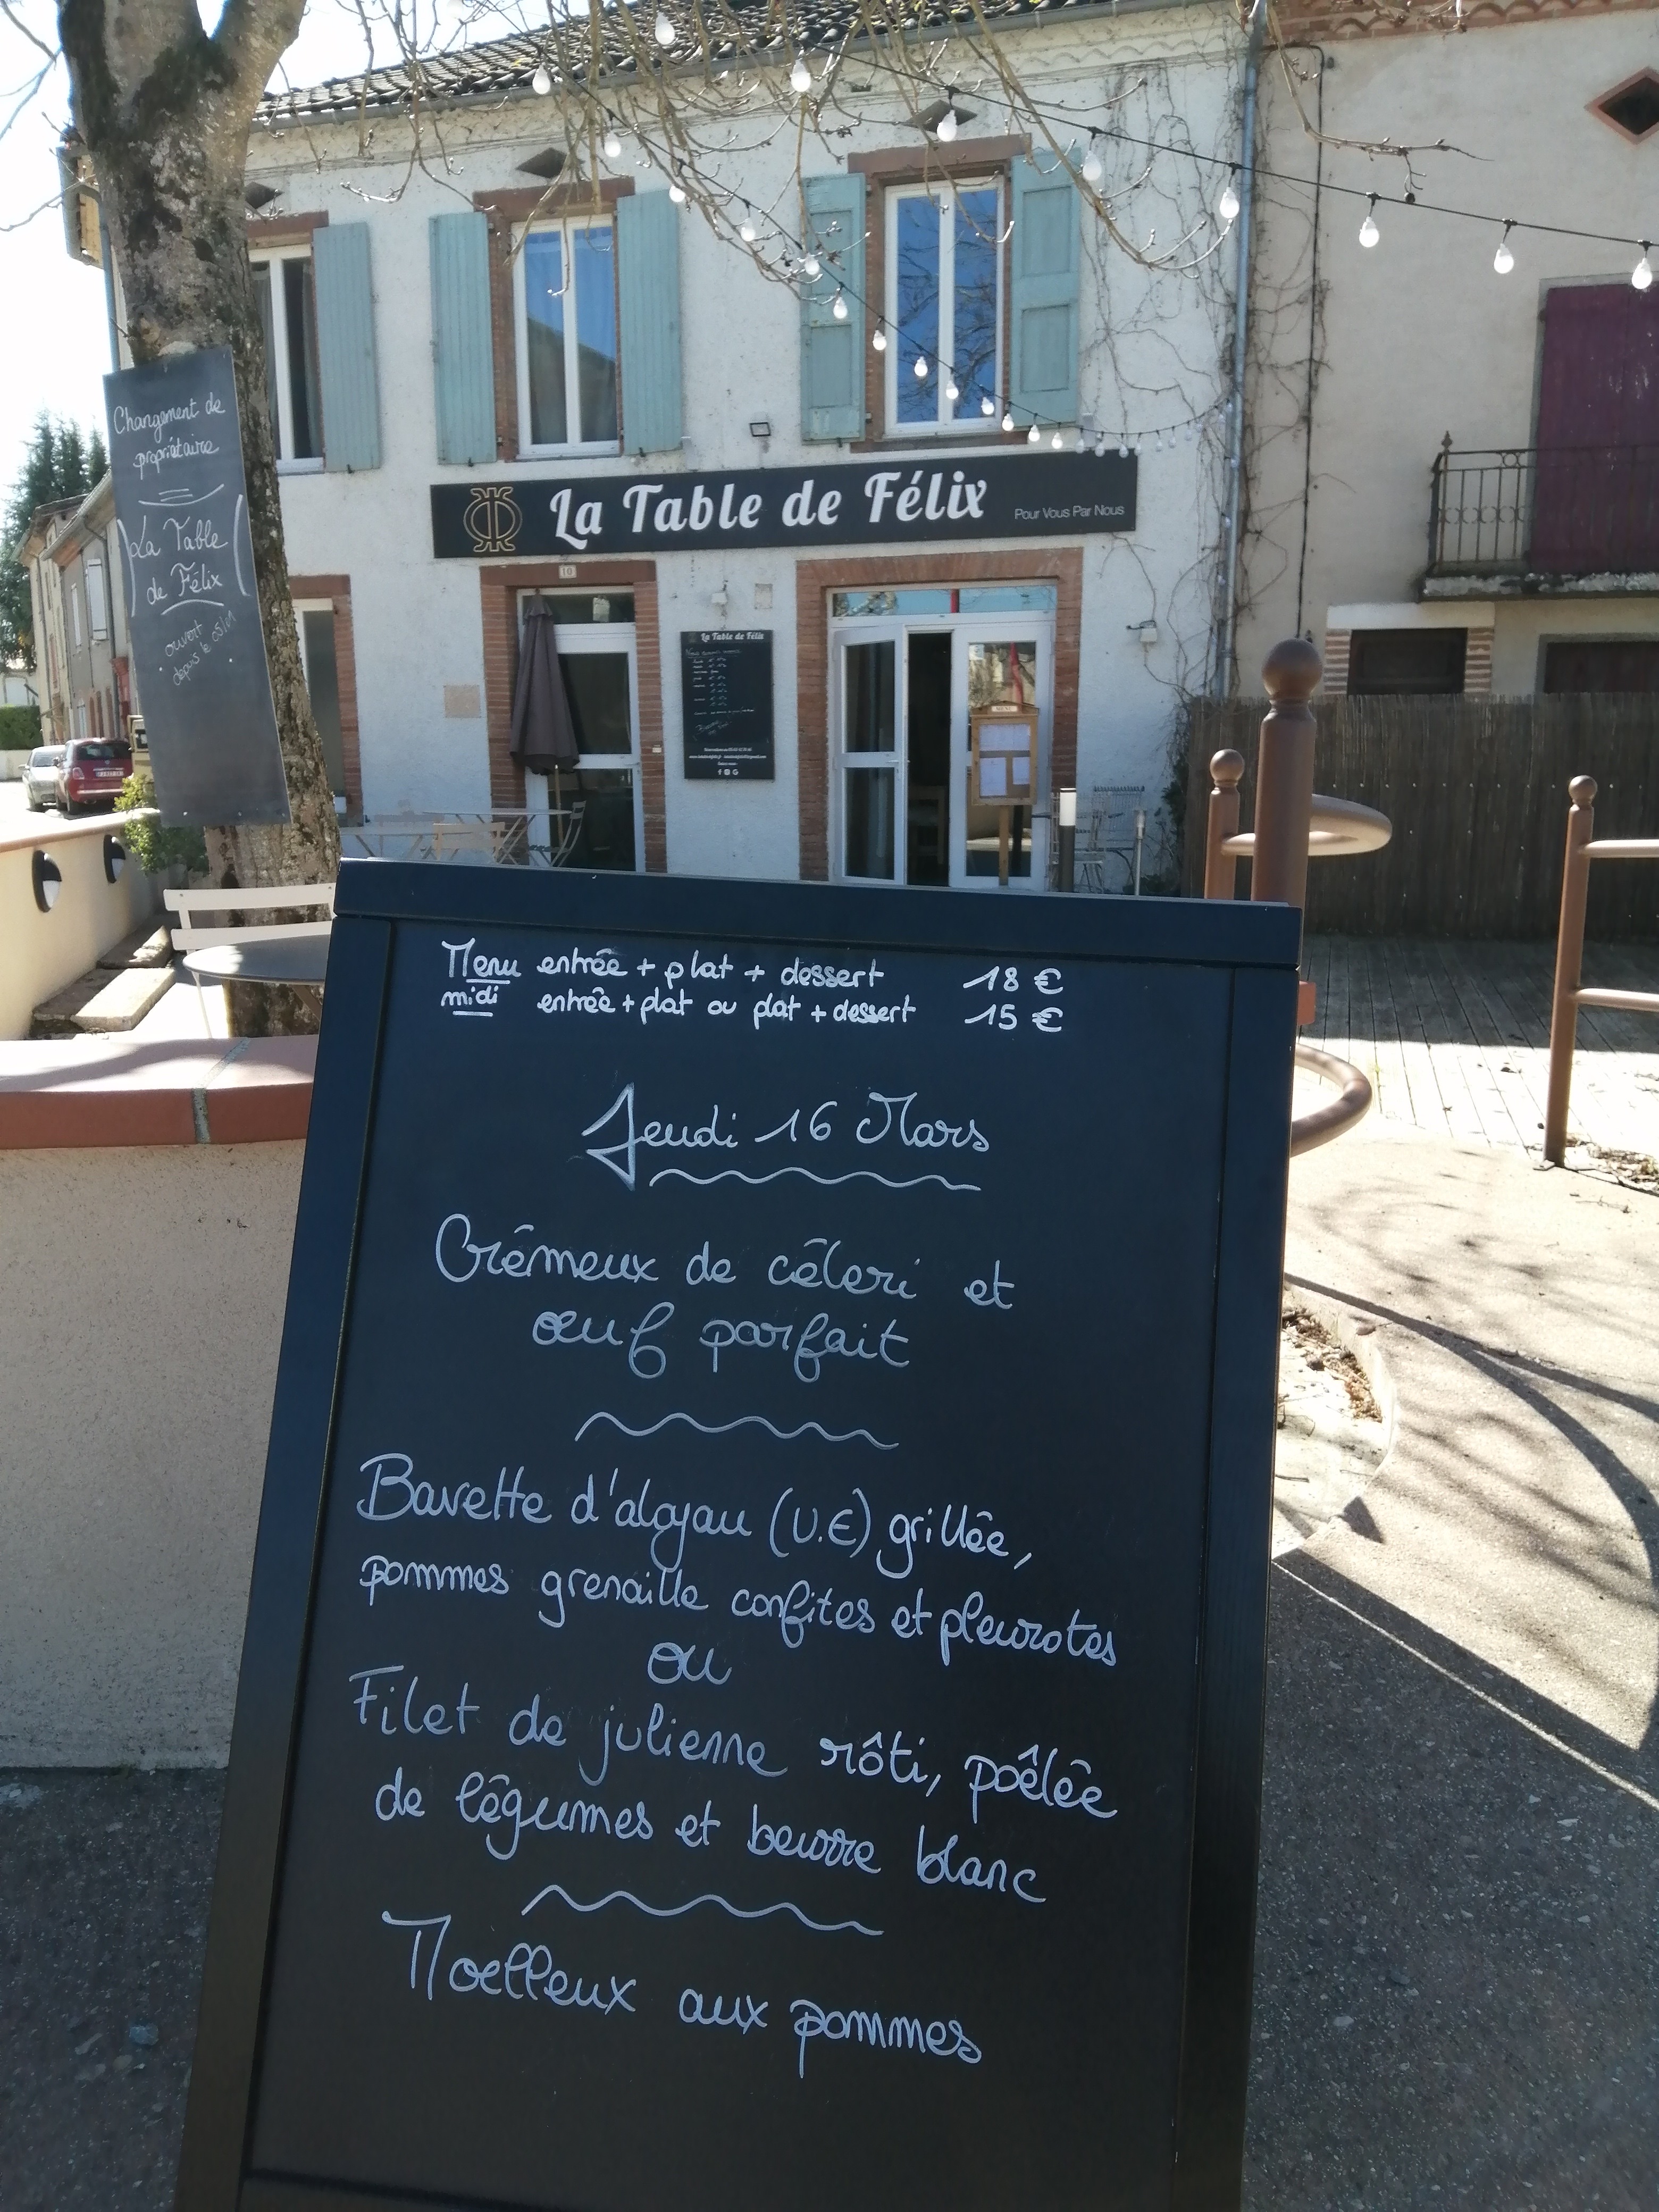 Changement de
propriétaire
La Table
de Félix
ouvert
depuis le 03/01
La Table de Félix
Pour Vous Par Nous
10
La Table de Félix
MENU
Menu entrée + plat + dessert 18 €
midi entrée + plat ou plat + dessert 15 €
Jeudi 16 Mars
Crémeux de céleri et
œuf parfait
Bavette d'aloyau (U.E) grillée,
pommes grenaille confites et pleurotes
ou
Filet de julienne rôti, poêlée
de légumes et beurre blanc
Moelleux aux pommes